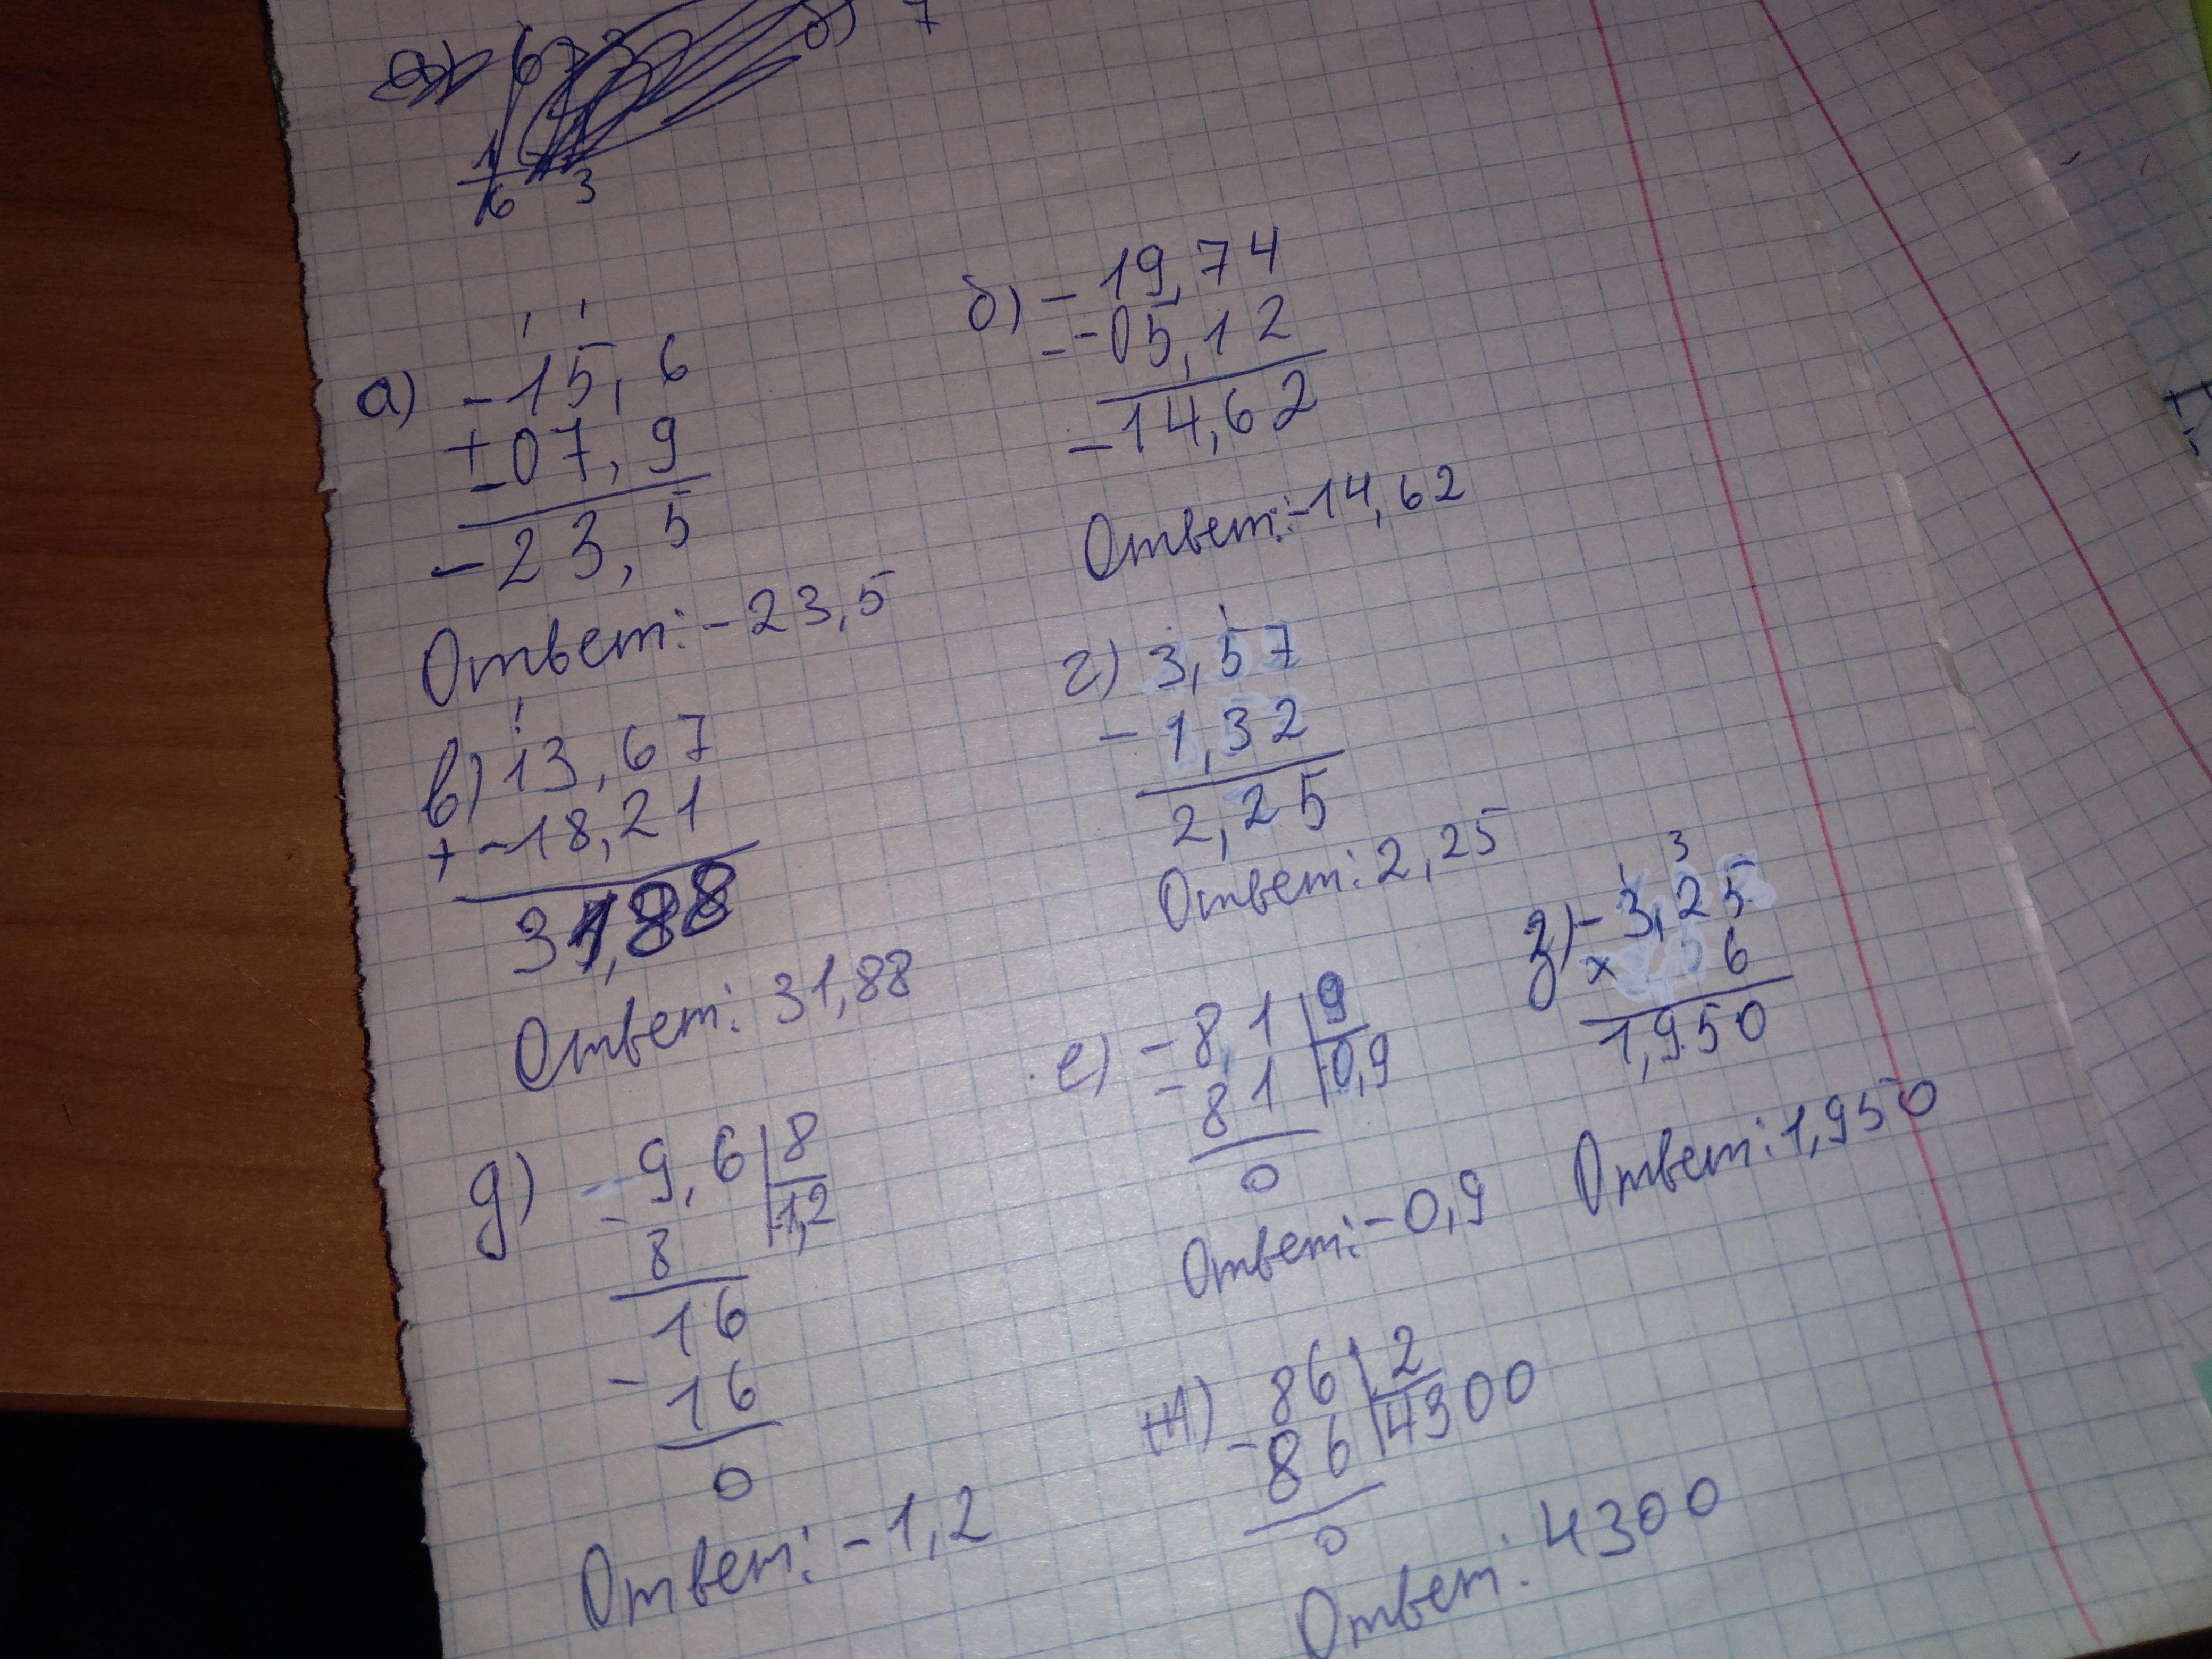 б) 7
6 3
а) -15,6
+
-07,9
-23,5
Ответ: -23,5
б) -19,74
--05,12
-14,62
Ответ: -14,62
в) 13,67
+ -18,21
31,88
Ответ: 31,88
г) 3,57
- 1,32
2,25
Ответ: 2,25
д) -9,6 | 8
- 8 -1,2
16
- 16
0
Ответ: -1,2
е) -8,1 | 9
- 81 -0,9
0
Ответ: -0,9
з) -3,25
x 6
1,950
Ответ: 1,950
ж) 86 | 2
- 86 4300
0
Ответ: 4300